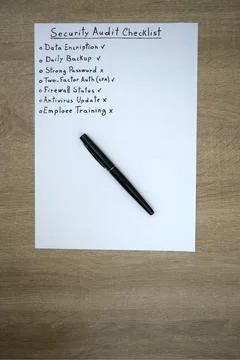 Security Audit Checklist
o Data Encription ✓
o Daily Backup ✓
o Strong Password x
o Two-Factor Auth (2FA) ✓
o Firewall Status ✓
o Antivirus Update x
o Emploee Training x